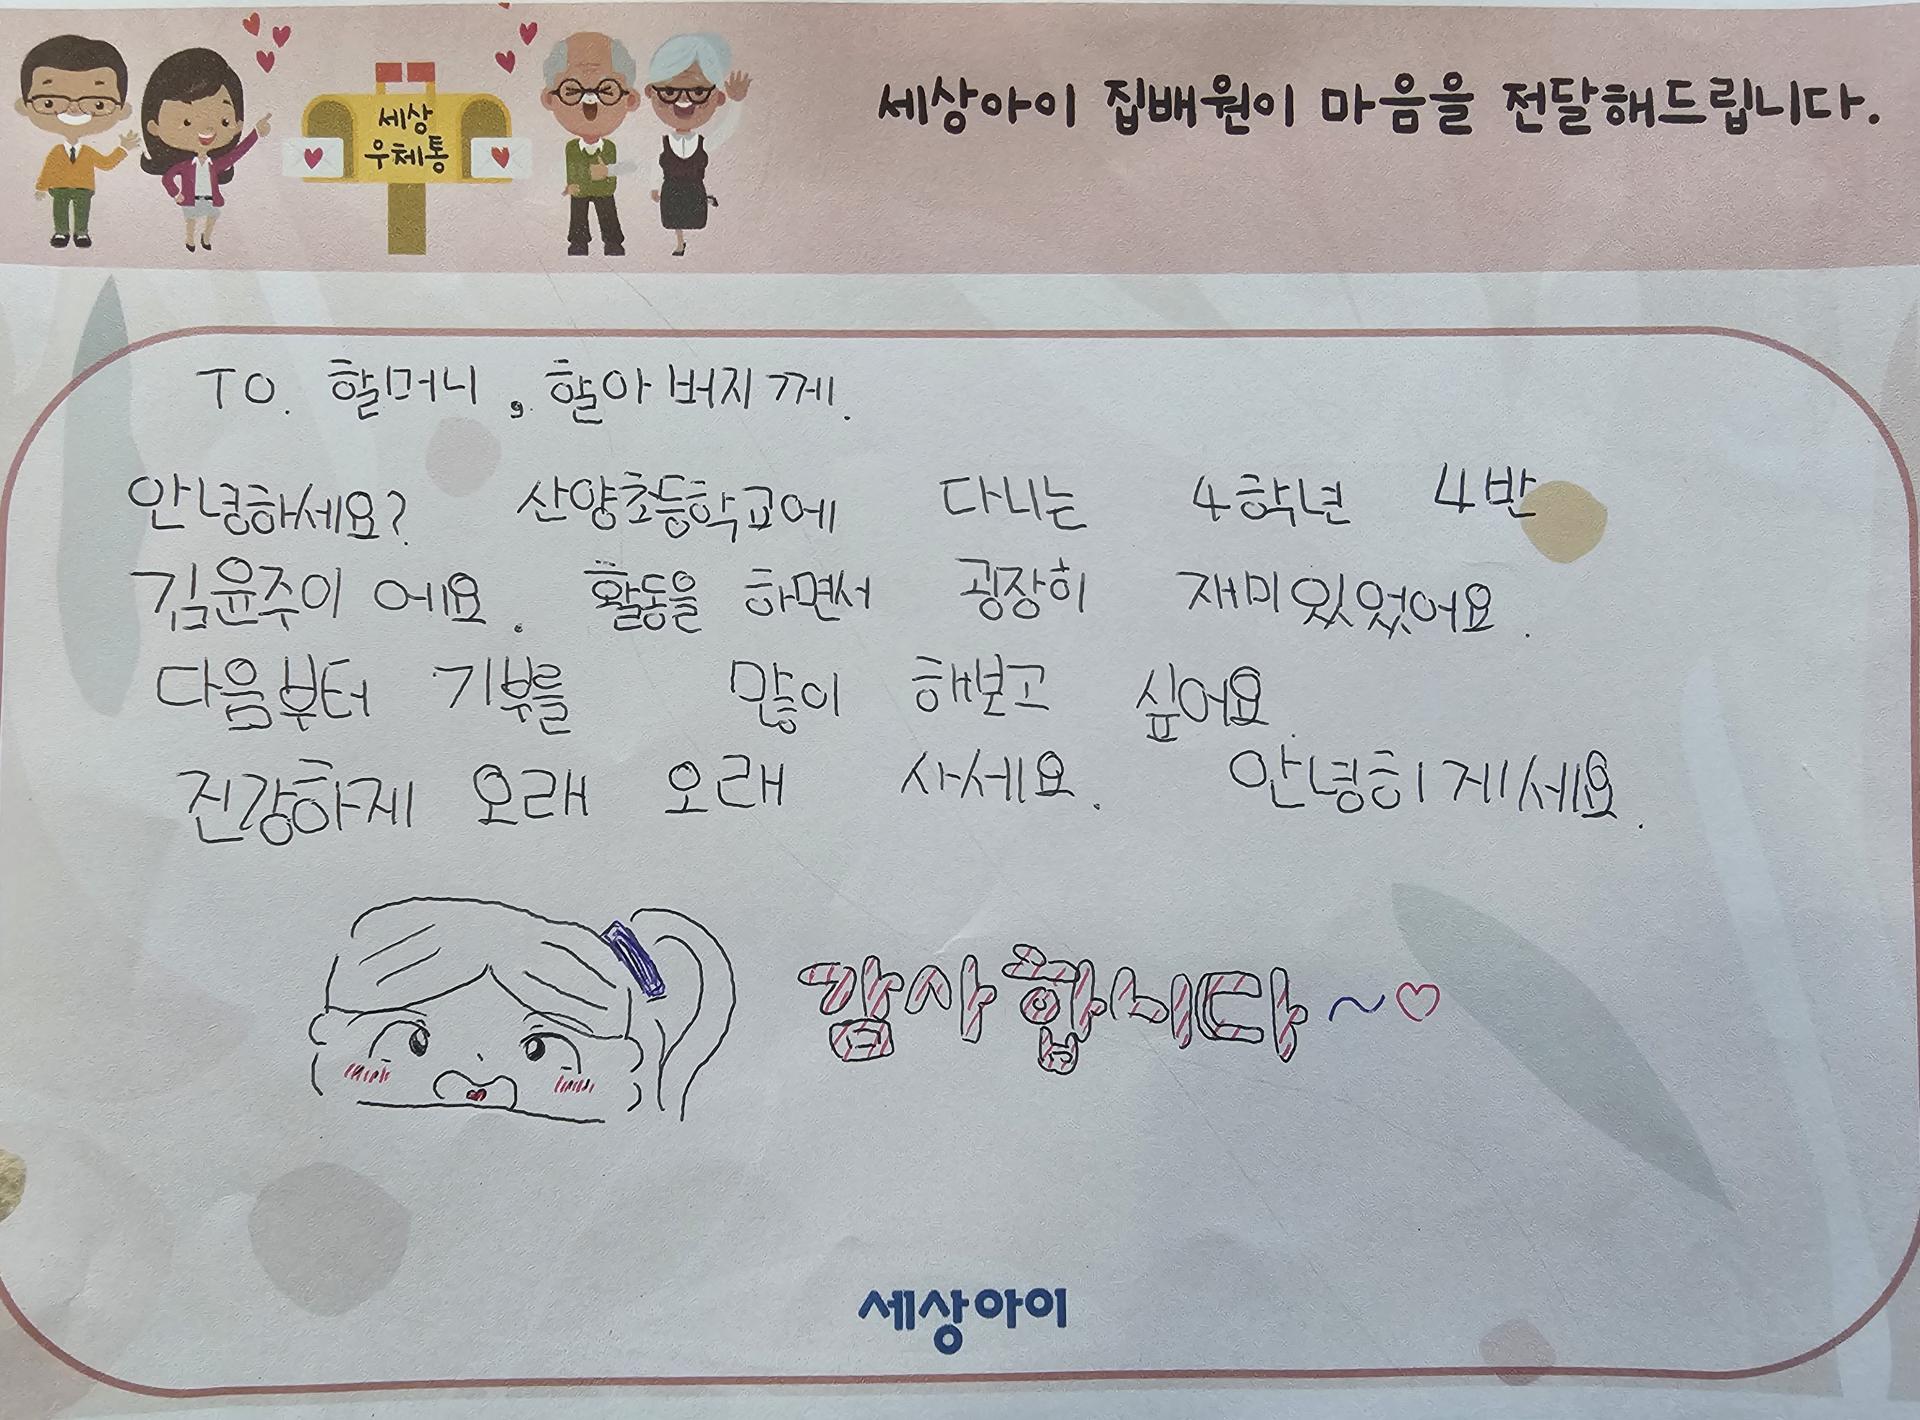 세상
우체통
세상아이 집배원이 마음을 전달해드립니다.
TO. 할머니, 할아버지께.
안녕하세요? 산양초등학교에 다니는 4학년 4반
김윤주이에요. 활동을 하면서 굉장히 재미있었어요.
다음부터 기부를 많이 해보고 싶어요.
진강하게 오래 오래 사세요. 안녕히 게세요.
감사합니다~♡
세상아이